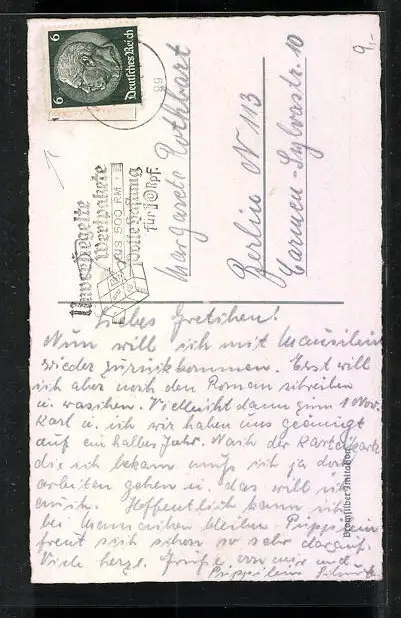 9,-
6
6
Deutsches Reich
Unversiegelte
Wertpakete
BIS 500 RM
volle Haftung
für 10 Rpf.
Margarete Rothbart
Berlin N 113
Carmen-Sylvastr. 10
Liebes Gretchen!
Nun will ich mit Mausilein
wieder zurückkommen. Erst will
ich aber noch den Roman schreiben
u. waschen. Vielleicht dann zum 1 Nov.
Karl u. ich wir haben uns geeinigt
auf ein halbes Jahr. Nach der Karteikarte
die ich bekam muß ich ja doch
arbeiten gehen u. das will ich
auch. Hoffentlich kann ich
bei Mamachen bleiben. Püppilein
freut sich schon so sehr darauf.
Viele herzl. Grüße von mir und
Püppilein
Bromsilber Imitation